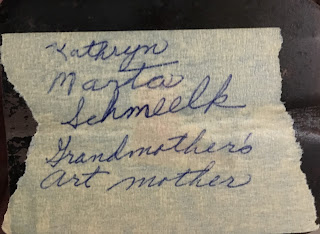 Kathryn
Marta
Schmeelk
Grandmother's
Art mother